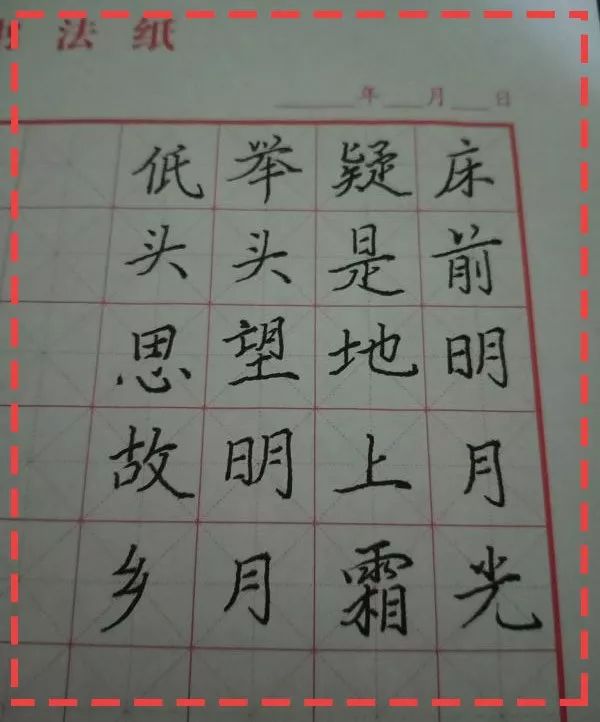 法纸
年 月 日
床前明月光
疑是地上霜
举头望明月
低头思故乡